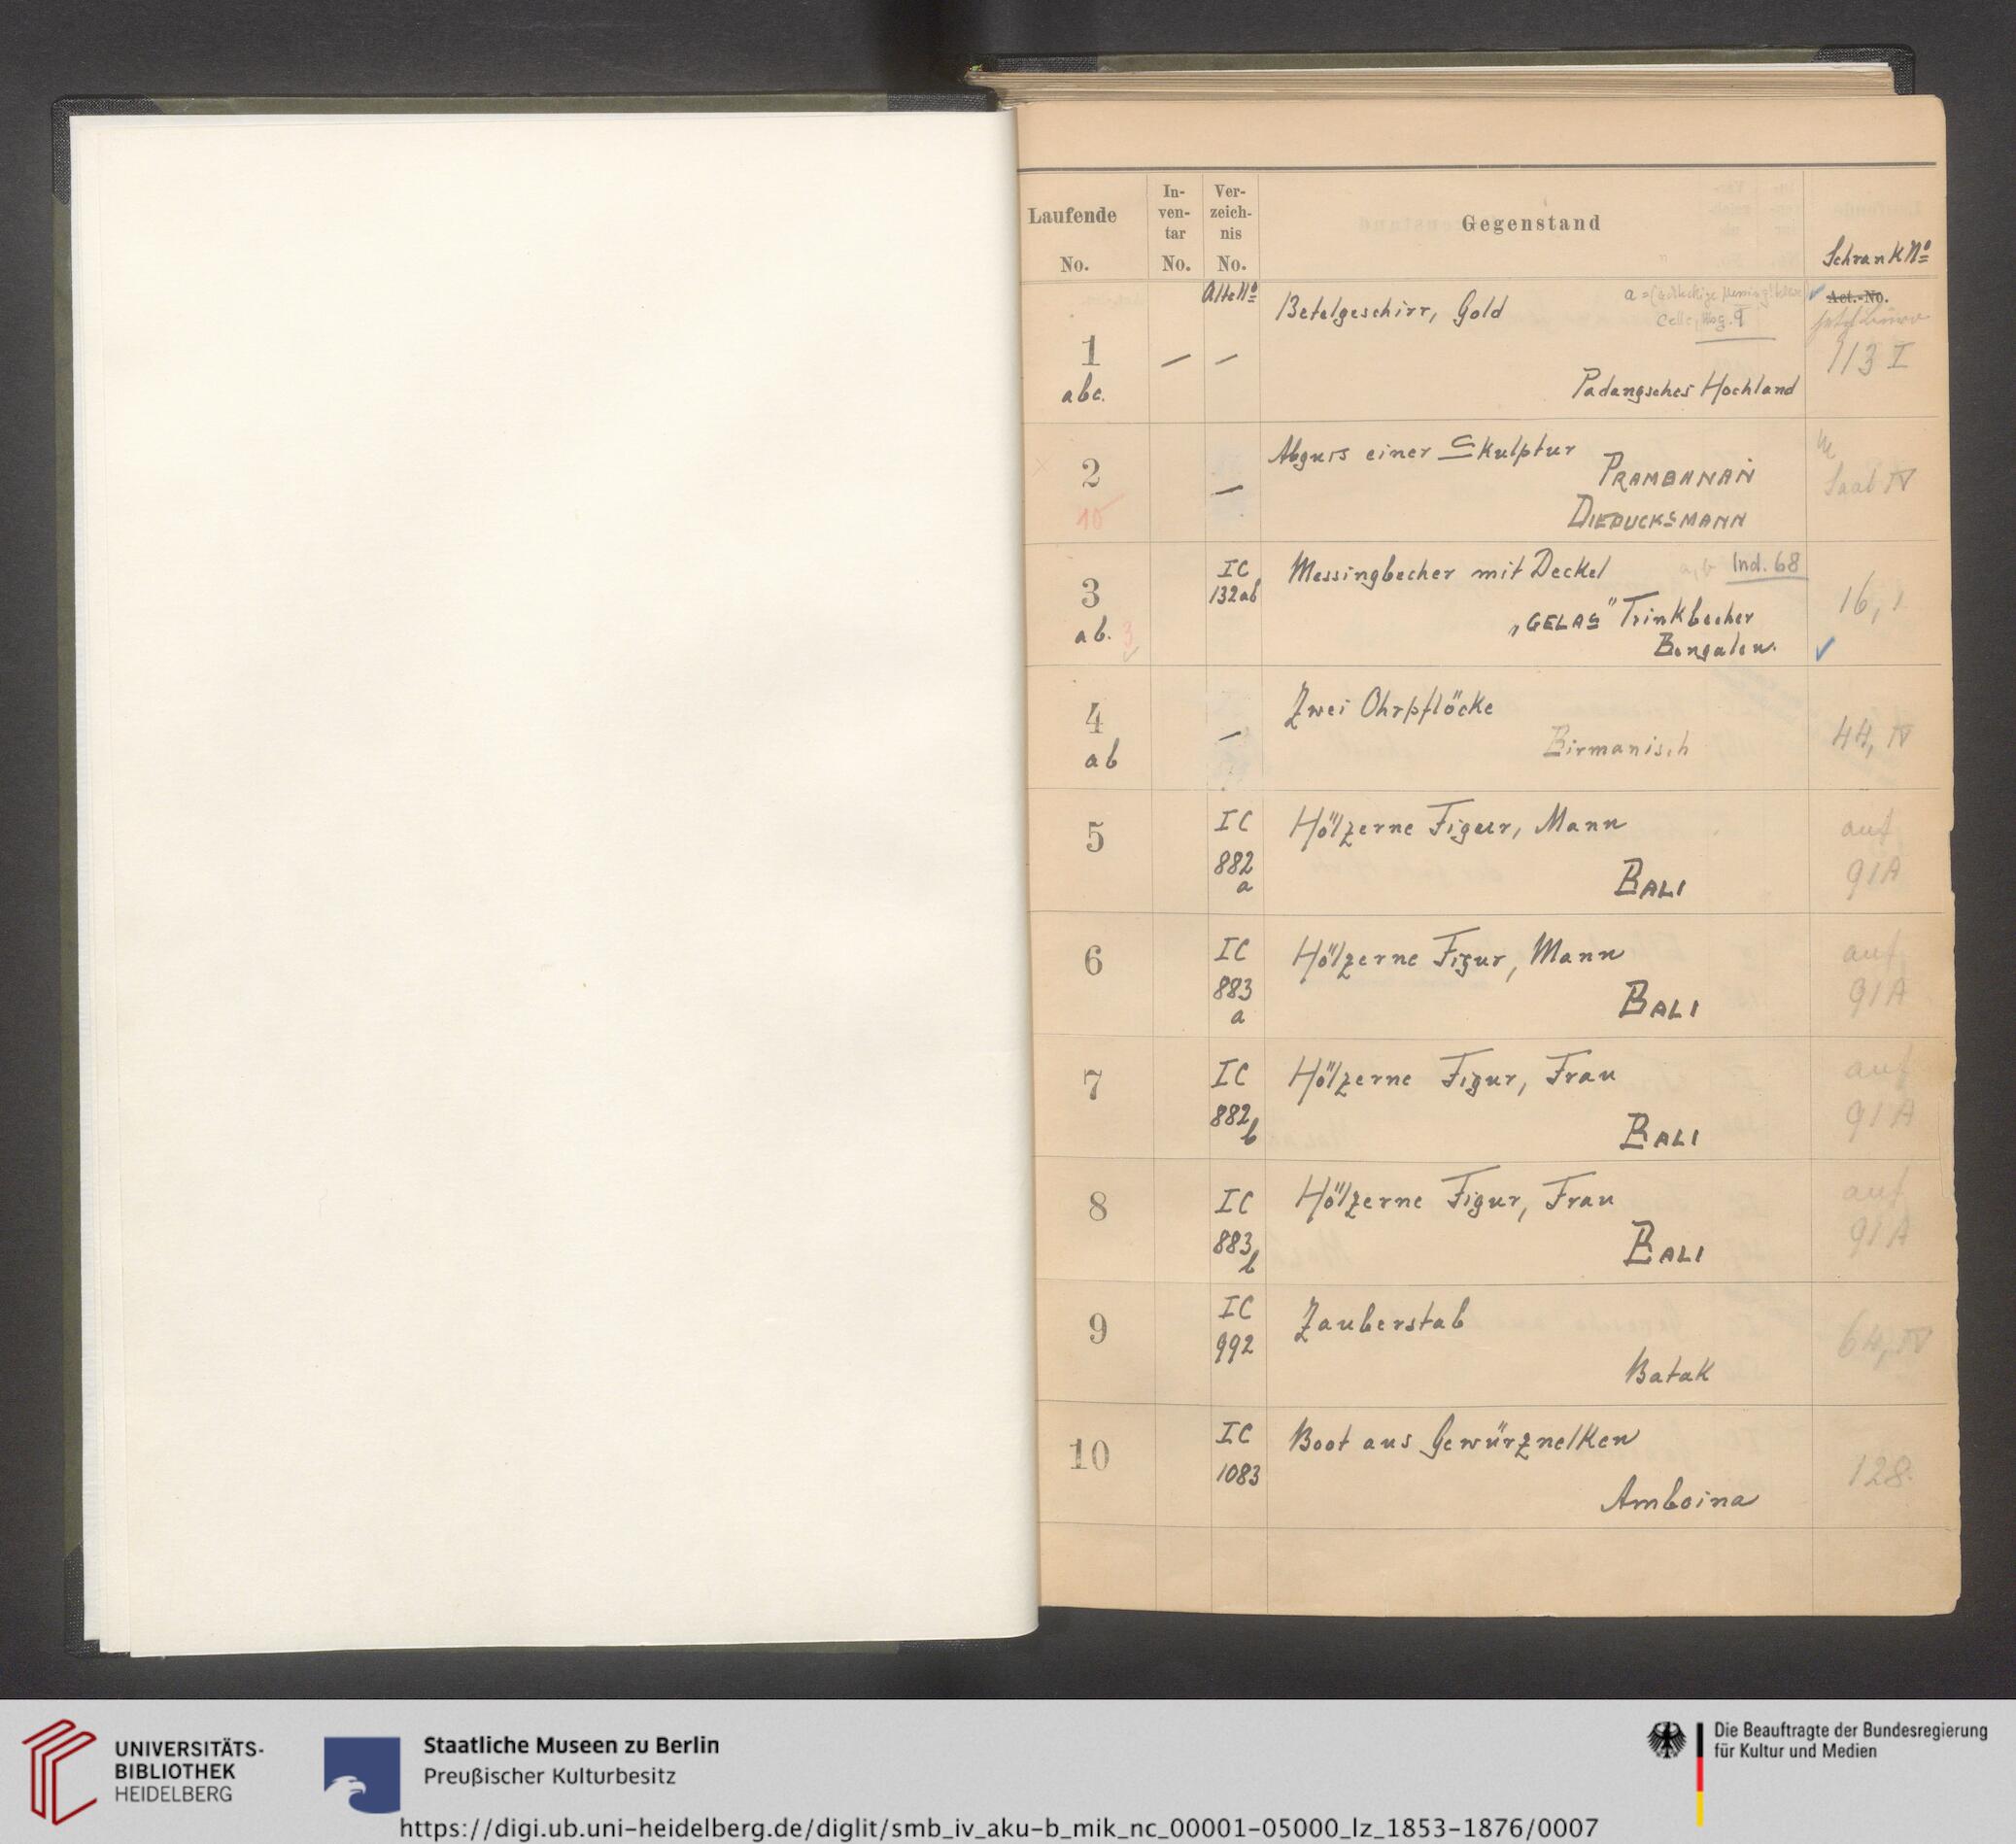 Laufende
No.
In-
ven-
tar
No.
Ver-
zeich-
nis
No.
Gegenstand
Schrank Nº
Alte Nº
Act.-No.
1
abc.
— —
Betelgeschirr, Gold
Celle, Mag. 9
Padangsches Hochland
113 I
2
10
—
Abguss einer Skulptur
PRAMBANAN
DIEDUCKSMANN
Saal IV
3
ab. 3
IC
132ab
Messingbecher mit Deckel
a, b Ind. 68
„GELAS" Trinkbecher
Bengalen.
16, 1
4
ab
—
Zwei Ohrpflöcke
Birmanisch
44, IV
5
IC
882
a
Hölzerne Figur, Mann
BALI
auf
91A
6
IC
883
a
Hölzerne Figur, Mann
BALI
auf
91A
7
IC
882
b
Hölzerne Figur, Frau
BALI
auf
91A
8
IC
883
b
Hölzerne Figur, Frau
BALI
auf
91A
9
IC
992
Zauberstab
Batak
64, IV
10
IC
1083
Boot aus Gewürznelken
Amboina
128.
UNIVERSITÄTS-
BIBLIOTHEK
HEIDELBERG
Staatliche Museen zu Berlin
Preußischer Kulturbesitz
Die Beauftragte der Bundesregierung
für Kultur und Medien
https://digi.ub.uni-heidelberg.de/diglit/smb_iv_aku-b_mik_nc_00001-05000_lz_1853-1876/0007